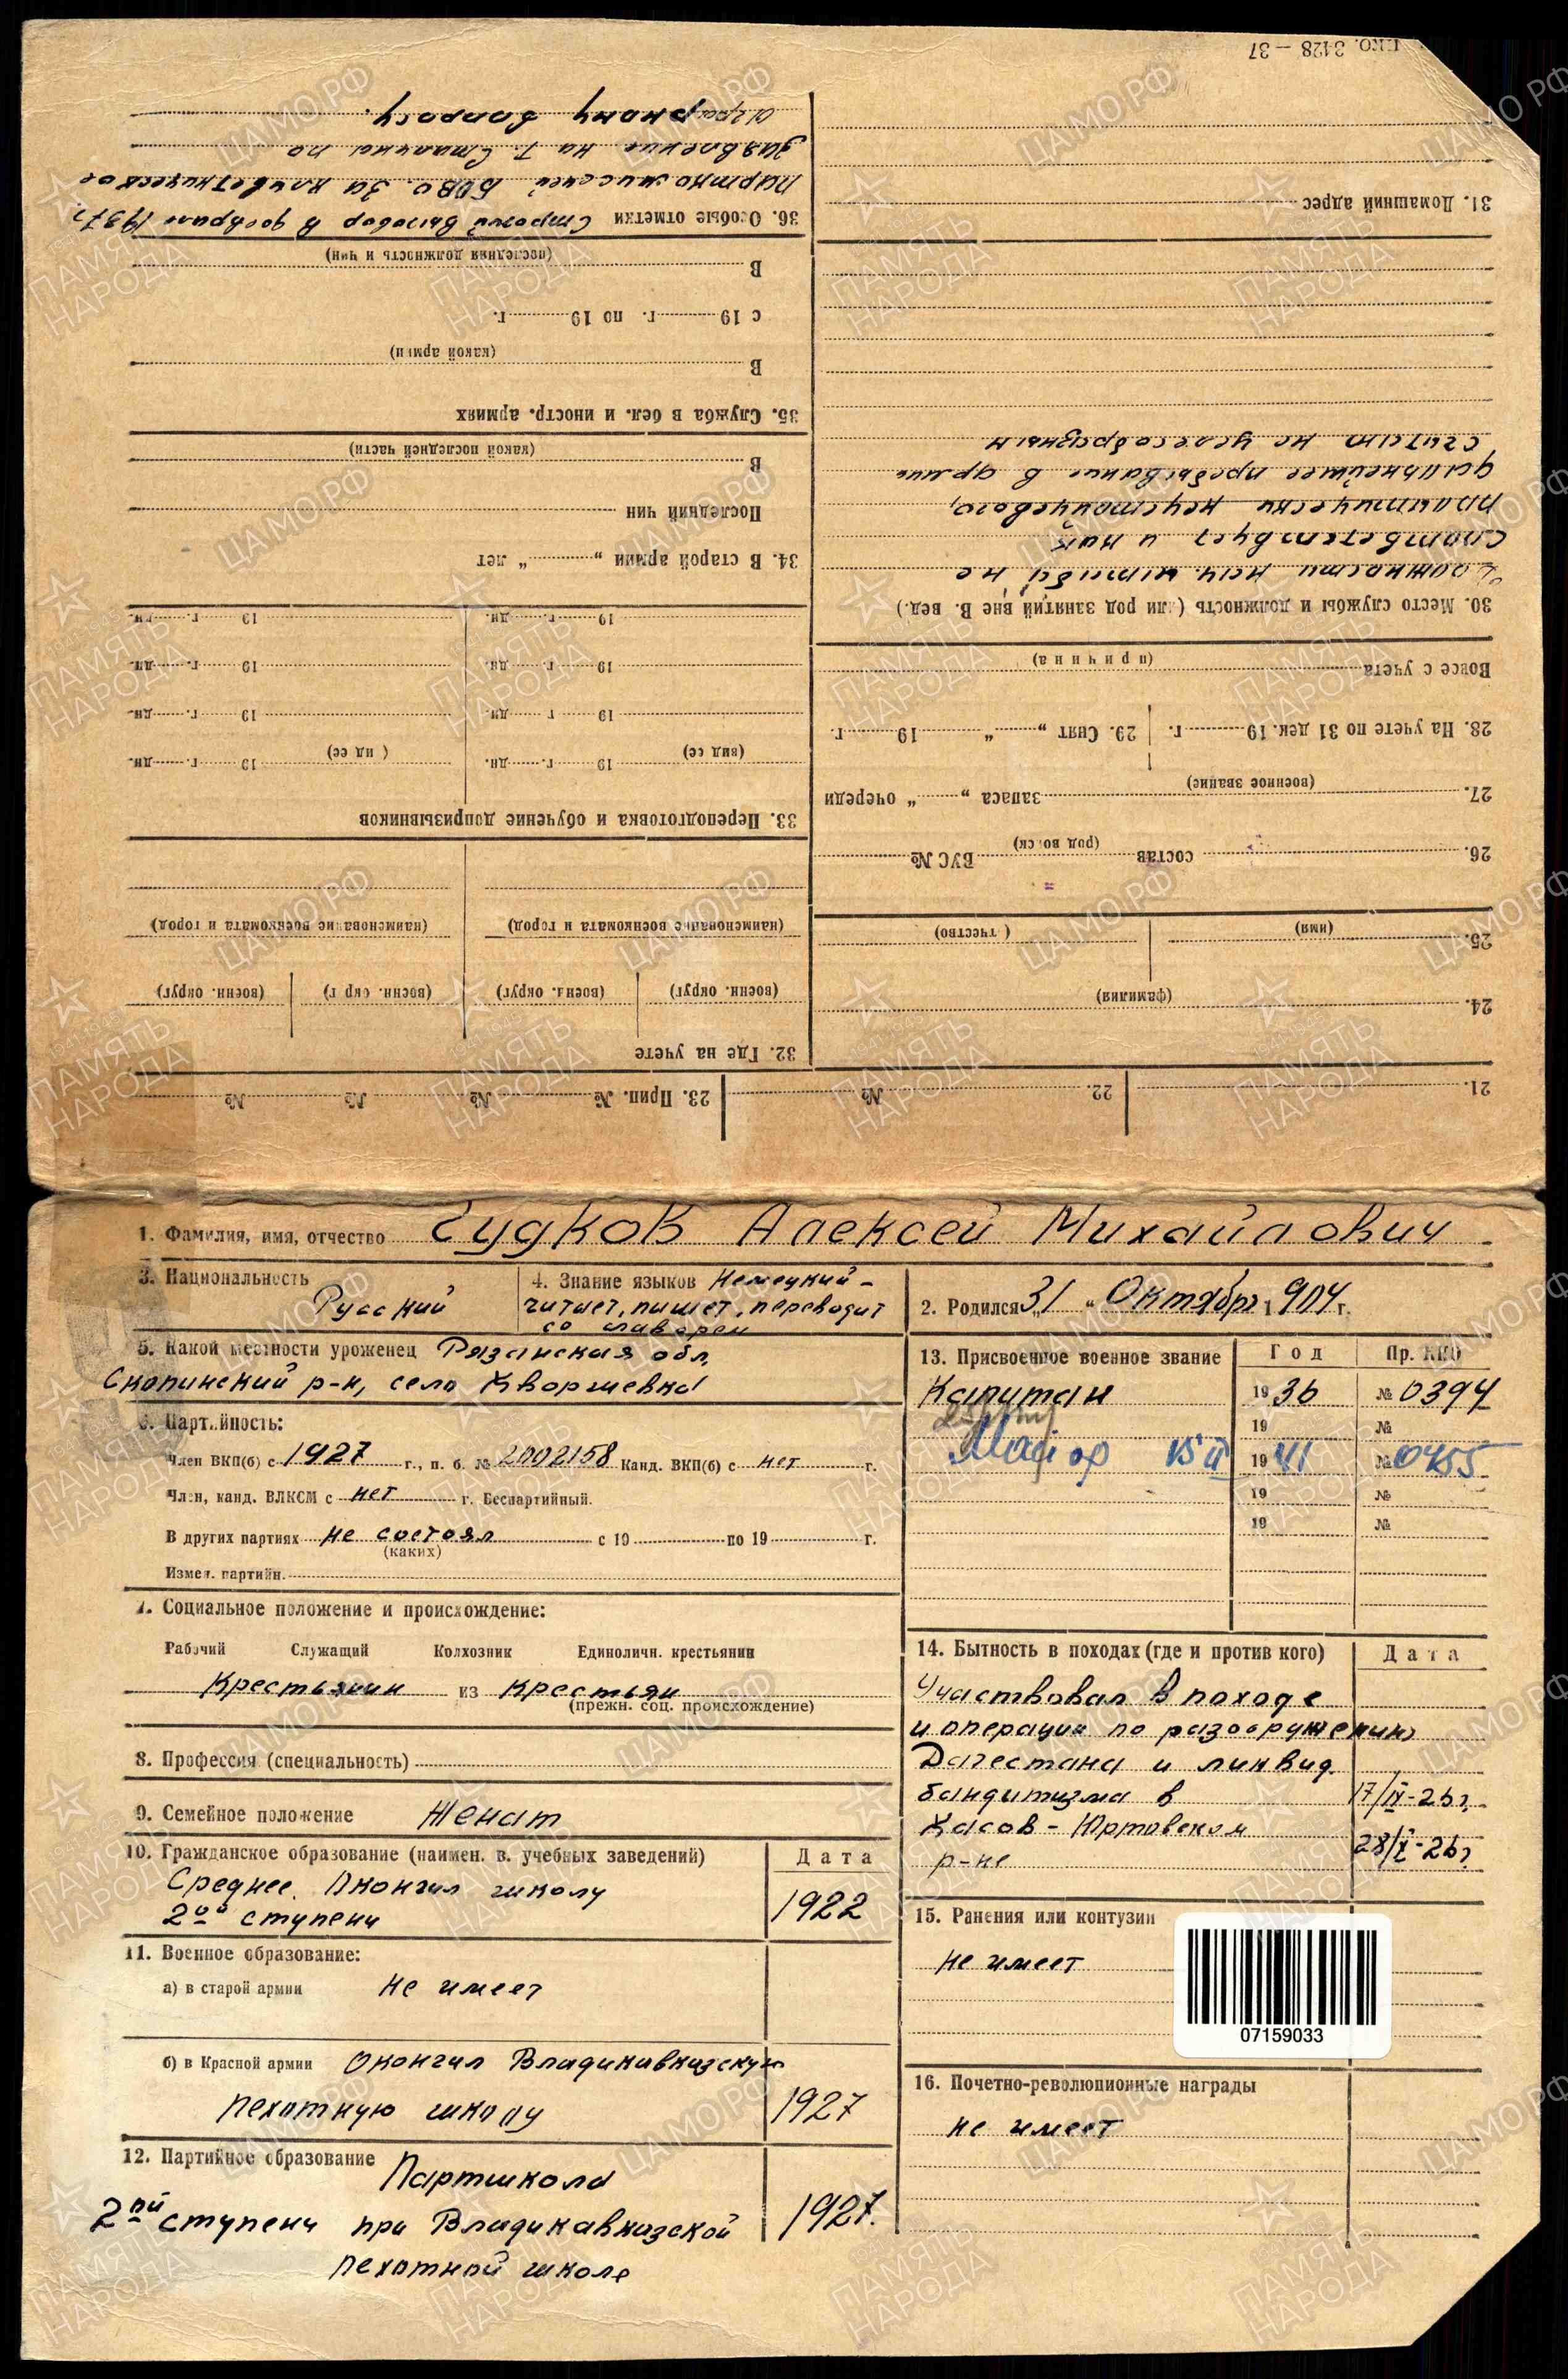 1. Фамилия, имя, отчество Гудков Алексей Михайлович
3. Национальность Русский
4. Знание языков Немецкий -
читает, пишет, переводит
со словарем
2. Родился „31“ Октября 1904 г.
5. Какой местности уроженец Рязанская обл,
Скопинский р-н, село Кворшевка
6. Партийность:
Член ВКП(б) с 1927 г., п. б. № 2002158 Канд. ВКП(б) с нет г.
Член, канд. ВЛКСМ с нет г. Беспартийный.
В других партиях не состоял с 19 по 19 г.
(каких)
Измен. партийн.
7. Социальное положение и происхождение:
Рабочий Служащий Колхозник Единоличн. крестьянин
Крестьянин из крестьян
(прежн. соц. происхождение)
8. Профессия (специальность)
9. Семейное положение Женат
10. Гражданское образование (наимен. в. учебных заведений) Дата
Среднее. Окончил школу
2ой ступени 1922
11. Военное образование:
а) в старой армии не имеет
б) в Красной армии Окончил Владикавказскую
пехотную школу 1927
12. Партийное образование Партшкола
2ой ступени при Владикавказской 1927.
пехотной школе
13. Присвоенное военное звание Год Пр. НКО
Капитан 1936 № 0394
19 №
Майор 15 II 1941 № 0455
19 №
19 №
14. Бытность в походах (где и против кого) Дата
Участвовал в походе
и операции по разооружению
Дагестана и ликвид.
бандитизма в 17/IX-26г.
Хасав-Юртовском
р-не 28/X-26г.
15. Ранения или контузии
не имеет
07159033
16. Почетно-революционные награды
не имеет
21. 22. № 23. Прип. № № № №
24.
(фамилия)
25.
(имя) (отчество)
26. состав ВУС №
(род войск)
27. запаса „ “ очереди
(военное звание)
28. На учете по 31 дек. 19 г. 29. Снят „ “ 19 г.
Вовсе с учета
(причина)
30. Место службы и должность (или род занятий вне В. вед.)
Должности нач. штаба не
соответствует и как
политически неустойчевого,
дальнейшее пребывание в армии
считат не целесообразным
31. Домашний адрес
32. Где на учете
(воєнн. округ) (воєнн. округ) (воєнн. округ) (воєнн. округ)
(наименование военкомата и город) (наименование военкомата и город)
33. Переподготовка и обучение допризывников
19 г. дн. 19 г. дн.
(вид ее) (вид ее)
19 г. дн. 19 г. дн.
19 г. дн. 19 г. дн.
19 г. дн. 19 г. дн.
34. В старой армии „ “ лет
Последний чин
В
(какой последней части)
35. Служба в бел. и иностр. армиях
В
(какой армии)
с 19 г. по 19 г.
В
(последняя должность и чин)
36. Особые отметки Строгий выговор в феврале 1937г.
парткомиссией БОВО. За клеветническое
заявление на т. Сталина по
аграрному вопросу.
3428 — 37
ПАМЯТЬ НАРОДА
ЦАМО.РФ